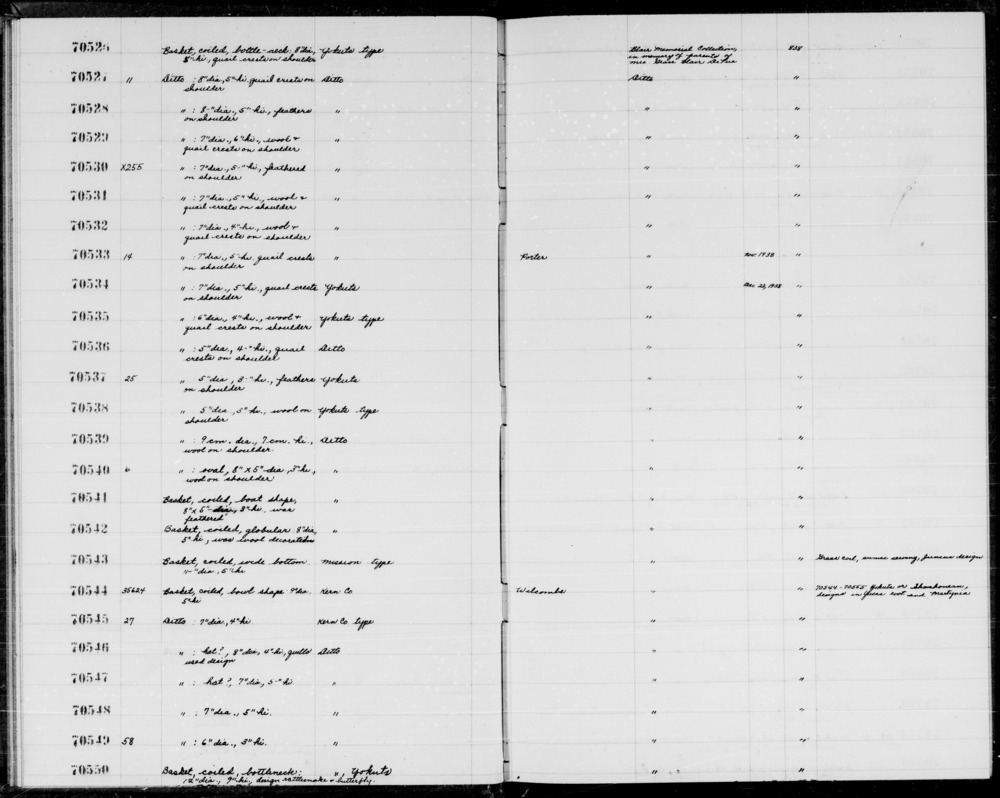 70526 Basket, coiled, bottle-neck, 8" dia, Yokuts type Blair Memorial Collection, 838
5" hi, quail crests on shoulder in memory of parents of
Mrs.
70527 11 Ditto : 8" dia, 5" hi quail crests on Ditto Ditto "
shoulder
70528 " : 8" dia., 5" hi., feathers " " "
on shoulder
70529 " : 7" dia., 6" hi., wool + " " "
quail crests on shoulder
70530 X255 " : 7" dia., 5" hi., feathered " " "
on shoulder
70531 " : 7" dia., 5" hi., wool + " " "
quail crests on shoulder
70532 " : 7" dia., 4" hi., wool + " " "
quail crests on shoulder
70533 14 " : 7" dia., 5" hi. quail crests " Porter " Nov. 1938 "
on shoulder
70534 " : 7" dia., 5" hi., quail crests Yokuts " Dec. 23, 1938 "
on shoulder
70535 " : 6" dia., 4" hi., wool + Yokuts type " "
quail crests on shoulder
70536 " : 5" dia., 4" hi., quail Ditto " "
crests on shoulder
70537 25 " 5" dia, 3" hi., feathers Yokuts " "
on shoulder
70538 " 5" dia., 3" hi., wool on Yokuts type " "
shoulder
70539 " : 9 cm. dia., 7 cm. hi., Ditto " "
wool on shoulder
70540 6 " : oval, 8" x 5" dia, 3" hi, " " "
wool on shoulder
70541 Basket, coiled, boat shape, " " "
8" x 5" dia, 3" hi. was
feathered
70542 Basket, coiled, globular 8" dia, " " "
5" hi, was wool decoration
70543 Basket, coiled, wide bottom Mission type " " Grass coil, sumac sewing, Juncus design
11" dia, 5" hi
70544 35624 Basket, coiled, bowl shape 9" dia. Kern Co Wilcombs " " 70544-70555 Yokuts or Shoshonean,
5" hi designs in yucca root and Martynia
70545 27 Ditto : 7" dia, 4" hi. Kern Co type " "
70546 " : hat?, 8" dia, 4" hi, quills Ditto " "
used design
70547 " : hat?, 7" dia, 5" hi " " "
70548 " : 7" dia., 5" hi. " " "
70549 58 " : 6" dia., 3" hi. " " "
70550 Basket, coiled, bottleneck: ", Yokuts " "
12" dia., 9" hi, design rattlesnake + butterfly.